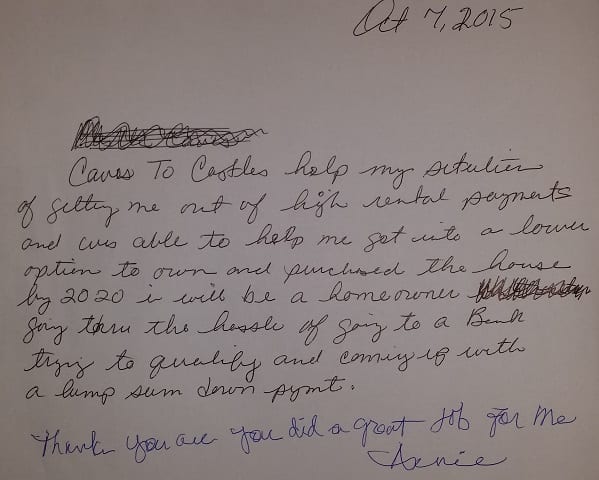 Oct 7, 2015
Caves To Castles help my
of getting me out of high rental payments
and was able to help me get into a lower
option to own and purchased the house
by 2020 i will be a homeowner
going thru the hassle of going to a Bank
trying to qualify and coming up with
a lump sum down pymt.
Thank you all you did a great Job for me